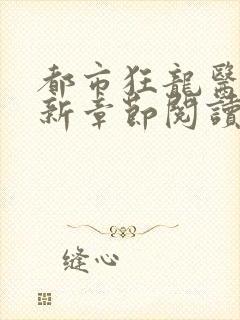 都市狂龍醫
新章節閱讀
缝心